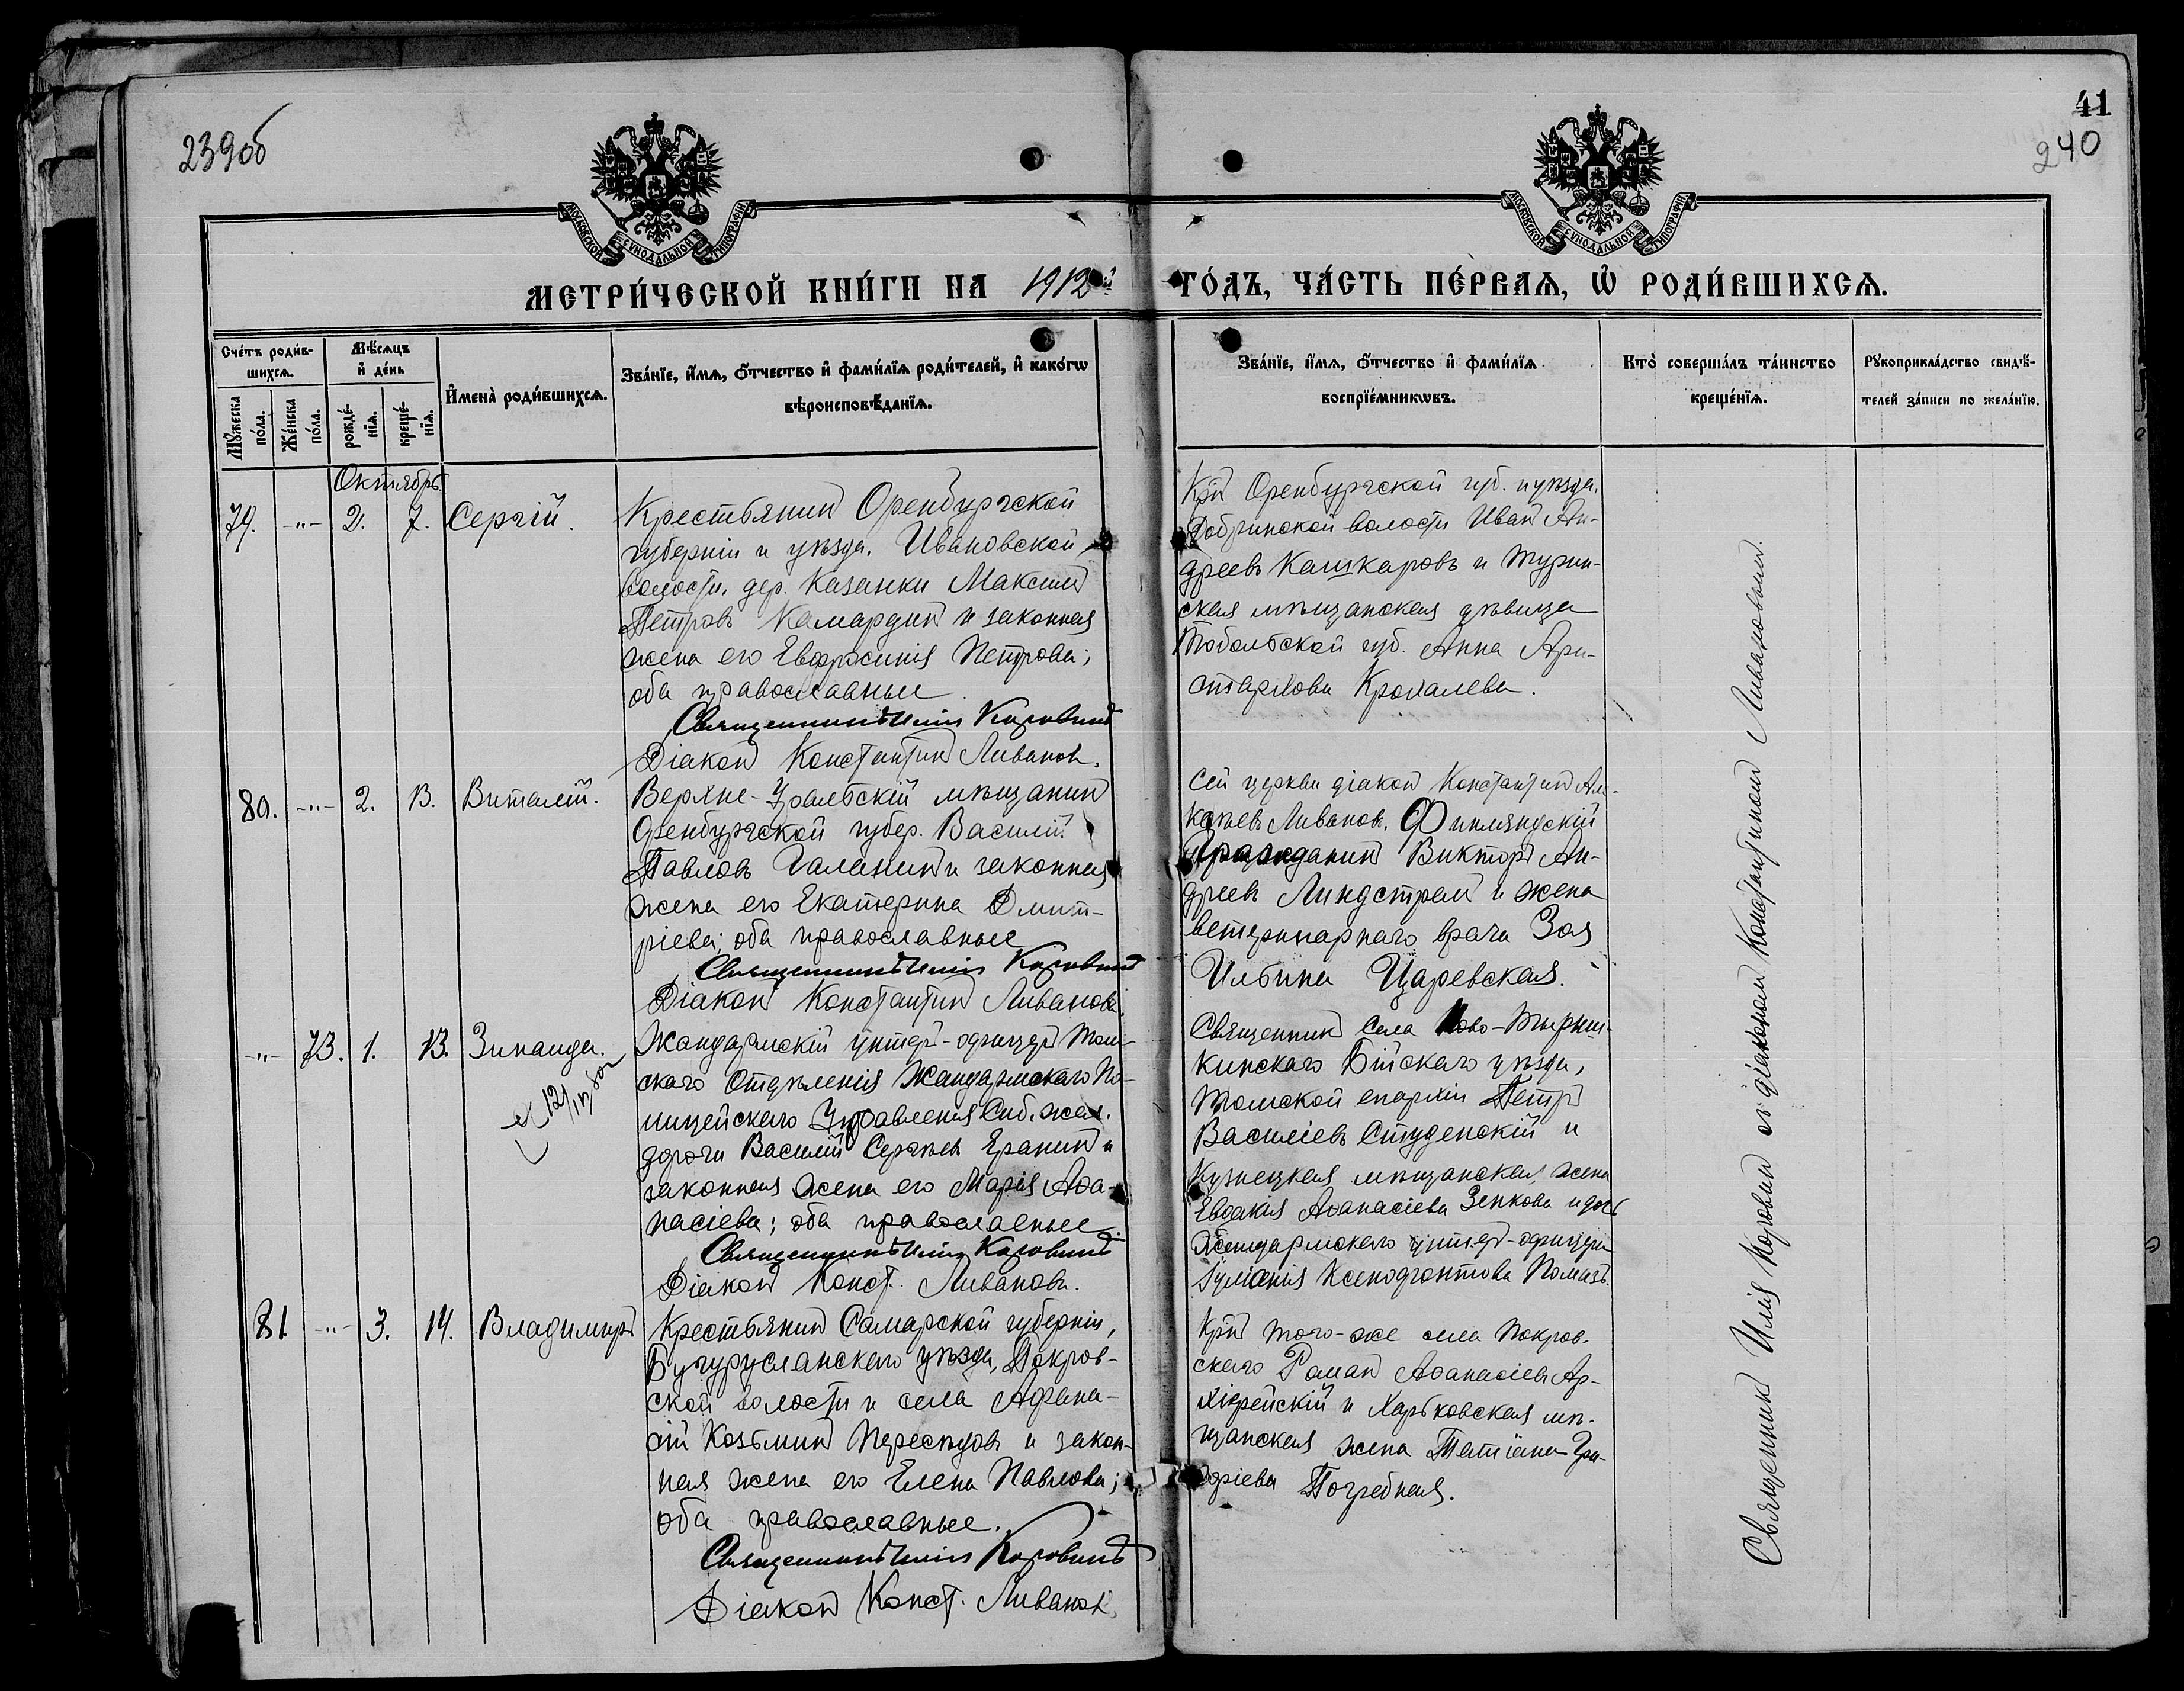 239об
41
240
МОСКОВСКОЙ СѴНОДАЛЬНОЙ ТИПОГРАФІИ
МОСКОВСКОЙ СѴНОДАЛЬНОЙ ТИПОГРАФІИ
МЕТРИ́ЧЕСКОЙ КНИ́ГИ НА 1912й ГО́ДЪ, ЧА́СТЬ ПЕ́РВАѦ, Ѡ҆ РОДИ́ВШИХСѦ.
Сче́тъ роди́в-
шихсѧ.
Мѣ́сѧцъ
и҆ де́нь
Мꙋ́жеска по́ла.
Же́нска по́ла.
рожде́-
нїѧ.
креще́-
нїѧ.
И҆мена̀ роди́вшихсѧ.
Зва́нїе, и҆́мѧ, ѻ҆́тчество и҆ фами́лїѧ роди́телей, и҆ како́гѡ
вѣроисповѣ́данїѧ.
Зва́нїе, и҆́мѧ, ѻ҆́тчество и҆ фами́лїѧ
воспрїе́мникѡвъ.
Кто̀ соверша́лъ та́инство
креще́нїѧ.
Рꙋкоприкла́дство свидѣ́-
телей за́писи по жела́нїю.
Октябрь.
79. -"- 2. 7. Сергій.
Крестьянинъ Оренбургской
губерніи и уѣзда, Ивановской
волости, дер. Казанки Максимъ
Петровъ Камардинъ и законная
жена его Евфросинія Петрова;
оба православные.
Священникъ Илія Коровинъ
Діаконъ Константинъ Ливановъ.
Крн Оренбургской губ. и уѣзда,
Добринской волости Иванъ Ан-
дреевъ Кашкаровъ и Турин-
ская мѣщанская дѣвица
Тобольской губ. Анна Ари-
стархова Крохалева.
80. -"- 2. 13. Виталій.
Верхне-Уральскій мѣщанинъ
Оренбургской губер. Василій
Павловъ Галанинъ и законная
жена его Екатерина Дмит-
ріева; оба православные
Священникъ Илія Коровинъ
Діаконъ Константинъ Ливановъ.
Сей церкви діаконъ Константинъ Али-
Ливановъ, Финляндскій
гражданинъ Викторъ Ан-
дреевъ Линдстремъ и жена
ветеринарнаго врача Зоя
Ильина Царевская.
-"- 73. 1. 13. Зинаида.
Жандармскій унтеръ-офицеръ Том-
скаго Отдѣленія Жандармскаго По-
лицейскаго Управленія Сиб. жел.
дороги Василій Сергѣевъ Еранинъ и
законная жена его Марія Аѳа-
насіева; оба православные.
Священникъ Илія Коровинъ
Діаконъ Конст. Ливановъ.
Священникъ села Ново-Тырыш-
кинскаго Бійскаго уѣзда,
Томской епархіи Петръ
Василіевъ Студенскій и
Кузнецкая мѣщанская жена
Евдокія Аѳанасіева Зенкова и дочь
Жандармскаго унтеръ-офицера
Іуліанія Ксенофонтова Помазъ.
81. -"- 3. 14. Владимиръ
Крестьянинъ Самарской губерніи,
Бугурусланскаго уѣзда, Покров-
ской волости и села Афана-
сій Козьминъ Пересѣдовъ и закон-
ная жена его Елена Павлова;
оба православные.
Священникъ Илія Коровинъ
Діаконъ Конст. Ливановъ.
Крнъ того-же села Покров-
скаго Романъ Аѳанасіевъ Ар-
хіерейскій и Харьковская мѣ-
щанская жена Татіана Гри-
горіева Погребная.
Священникъ Илія Коровинъ съ діакономъ Константиномъ Ливановымъ.